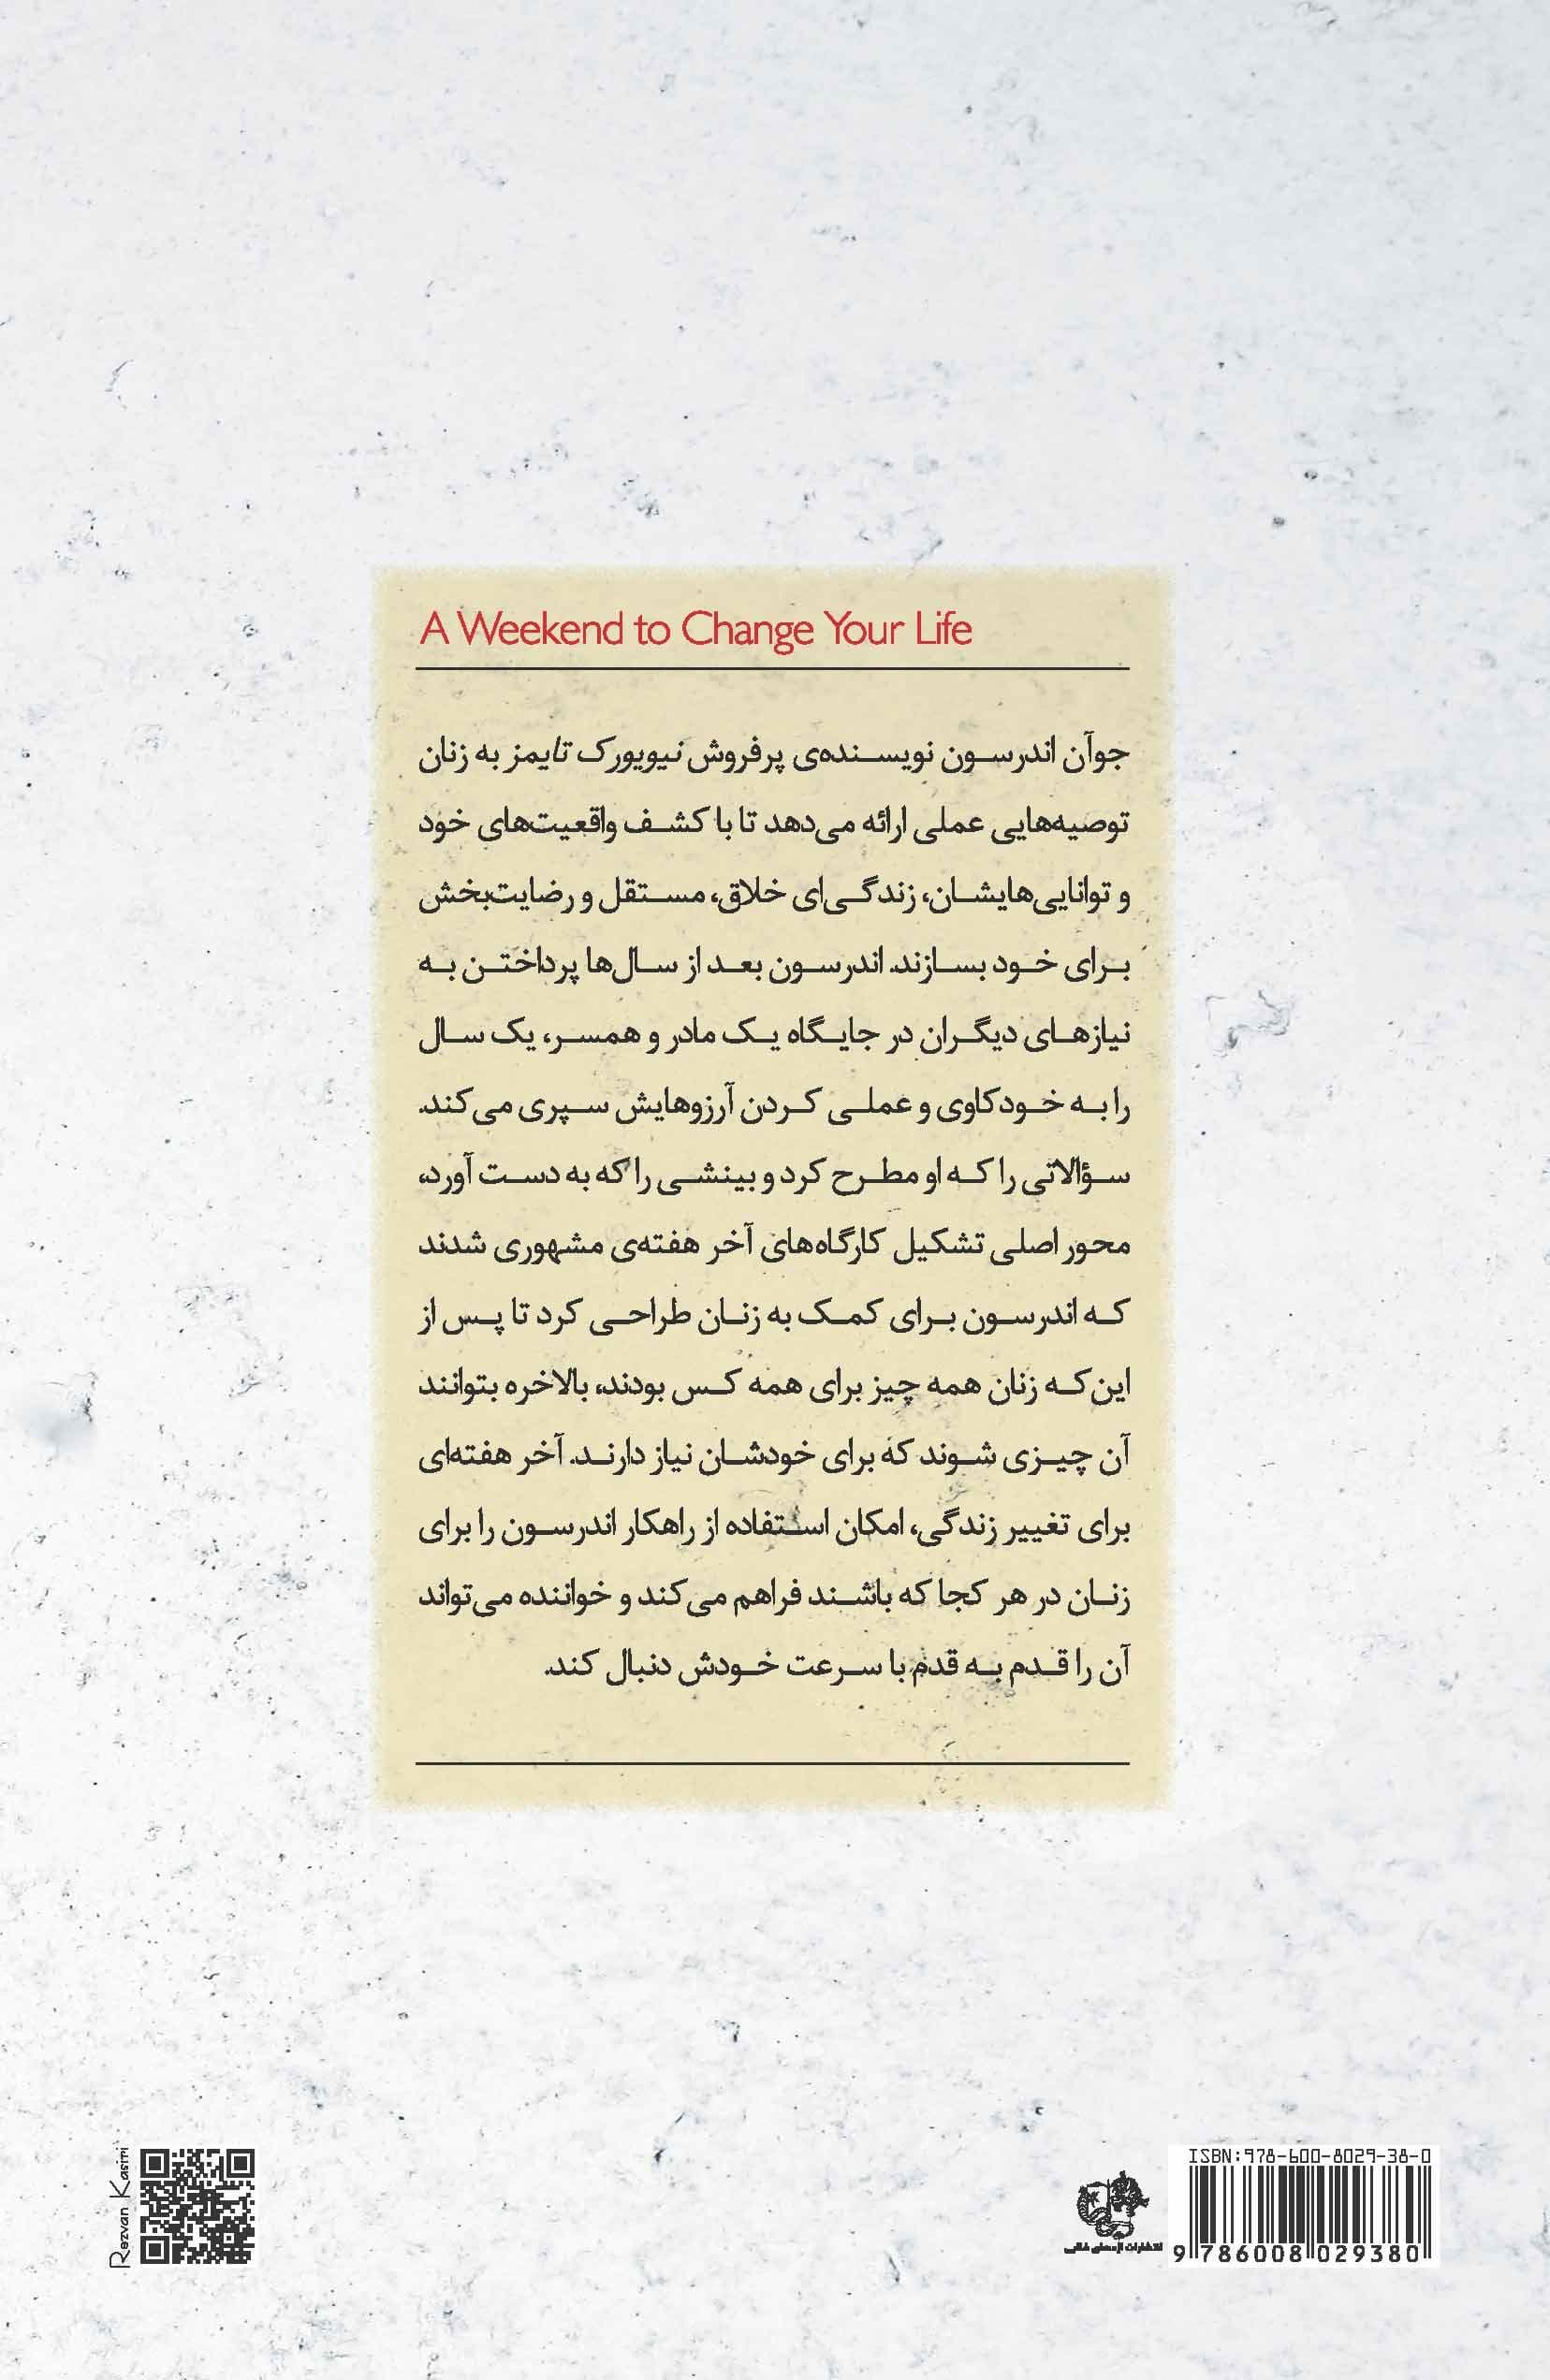 A Weekend to Change Your Life
جوآن اندرسون نویسنده‌ی پرفروش نیویورک تایمز به زنان
توصیه‌هایی عملی ارائه می‌دهد تا با کشف واقعیت‌های خود
و توانایی‌هایشان، زندگی‌ای خلاق، مستقل و رضایت‌بخش
برای خود بسازند. اندرسون بعد از سال‌ها پرداختن به
نیازهای دیگران در جایگاه یک مادر و همسر، یک سال
را به خودکاوی و عملی کردن آرزوهایش سپری می‌کند.
سؤالاتی را که او مطرح کرد و بینشی را که به دست آورد،
محور اصلی تشکیل کارگاه‌های آخر هفته‌ی مشهوری شدند
که اندرسون برای کمک به زنان طراحی کرد تا پس از
این‌که زنان همه چیز برای همه کس بودند، بالاخره بتوانند
آن چیزی شوند که برای خودشان نیاز دارند. آخر هفته‌ای
برای تغییر زندگی، امکان استفاده از راهکار اندرسون را برای
زنان در هر کجا که باشند فراهم می‌کند و خواننده می‌تواند
آن را قدم به قدم با سرعت خودش دنبال کند.
Rezvan Kasiri
ISBN:978-600-8029-38-0
9 786008 029380